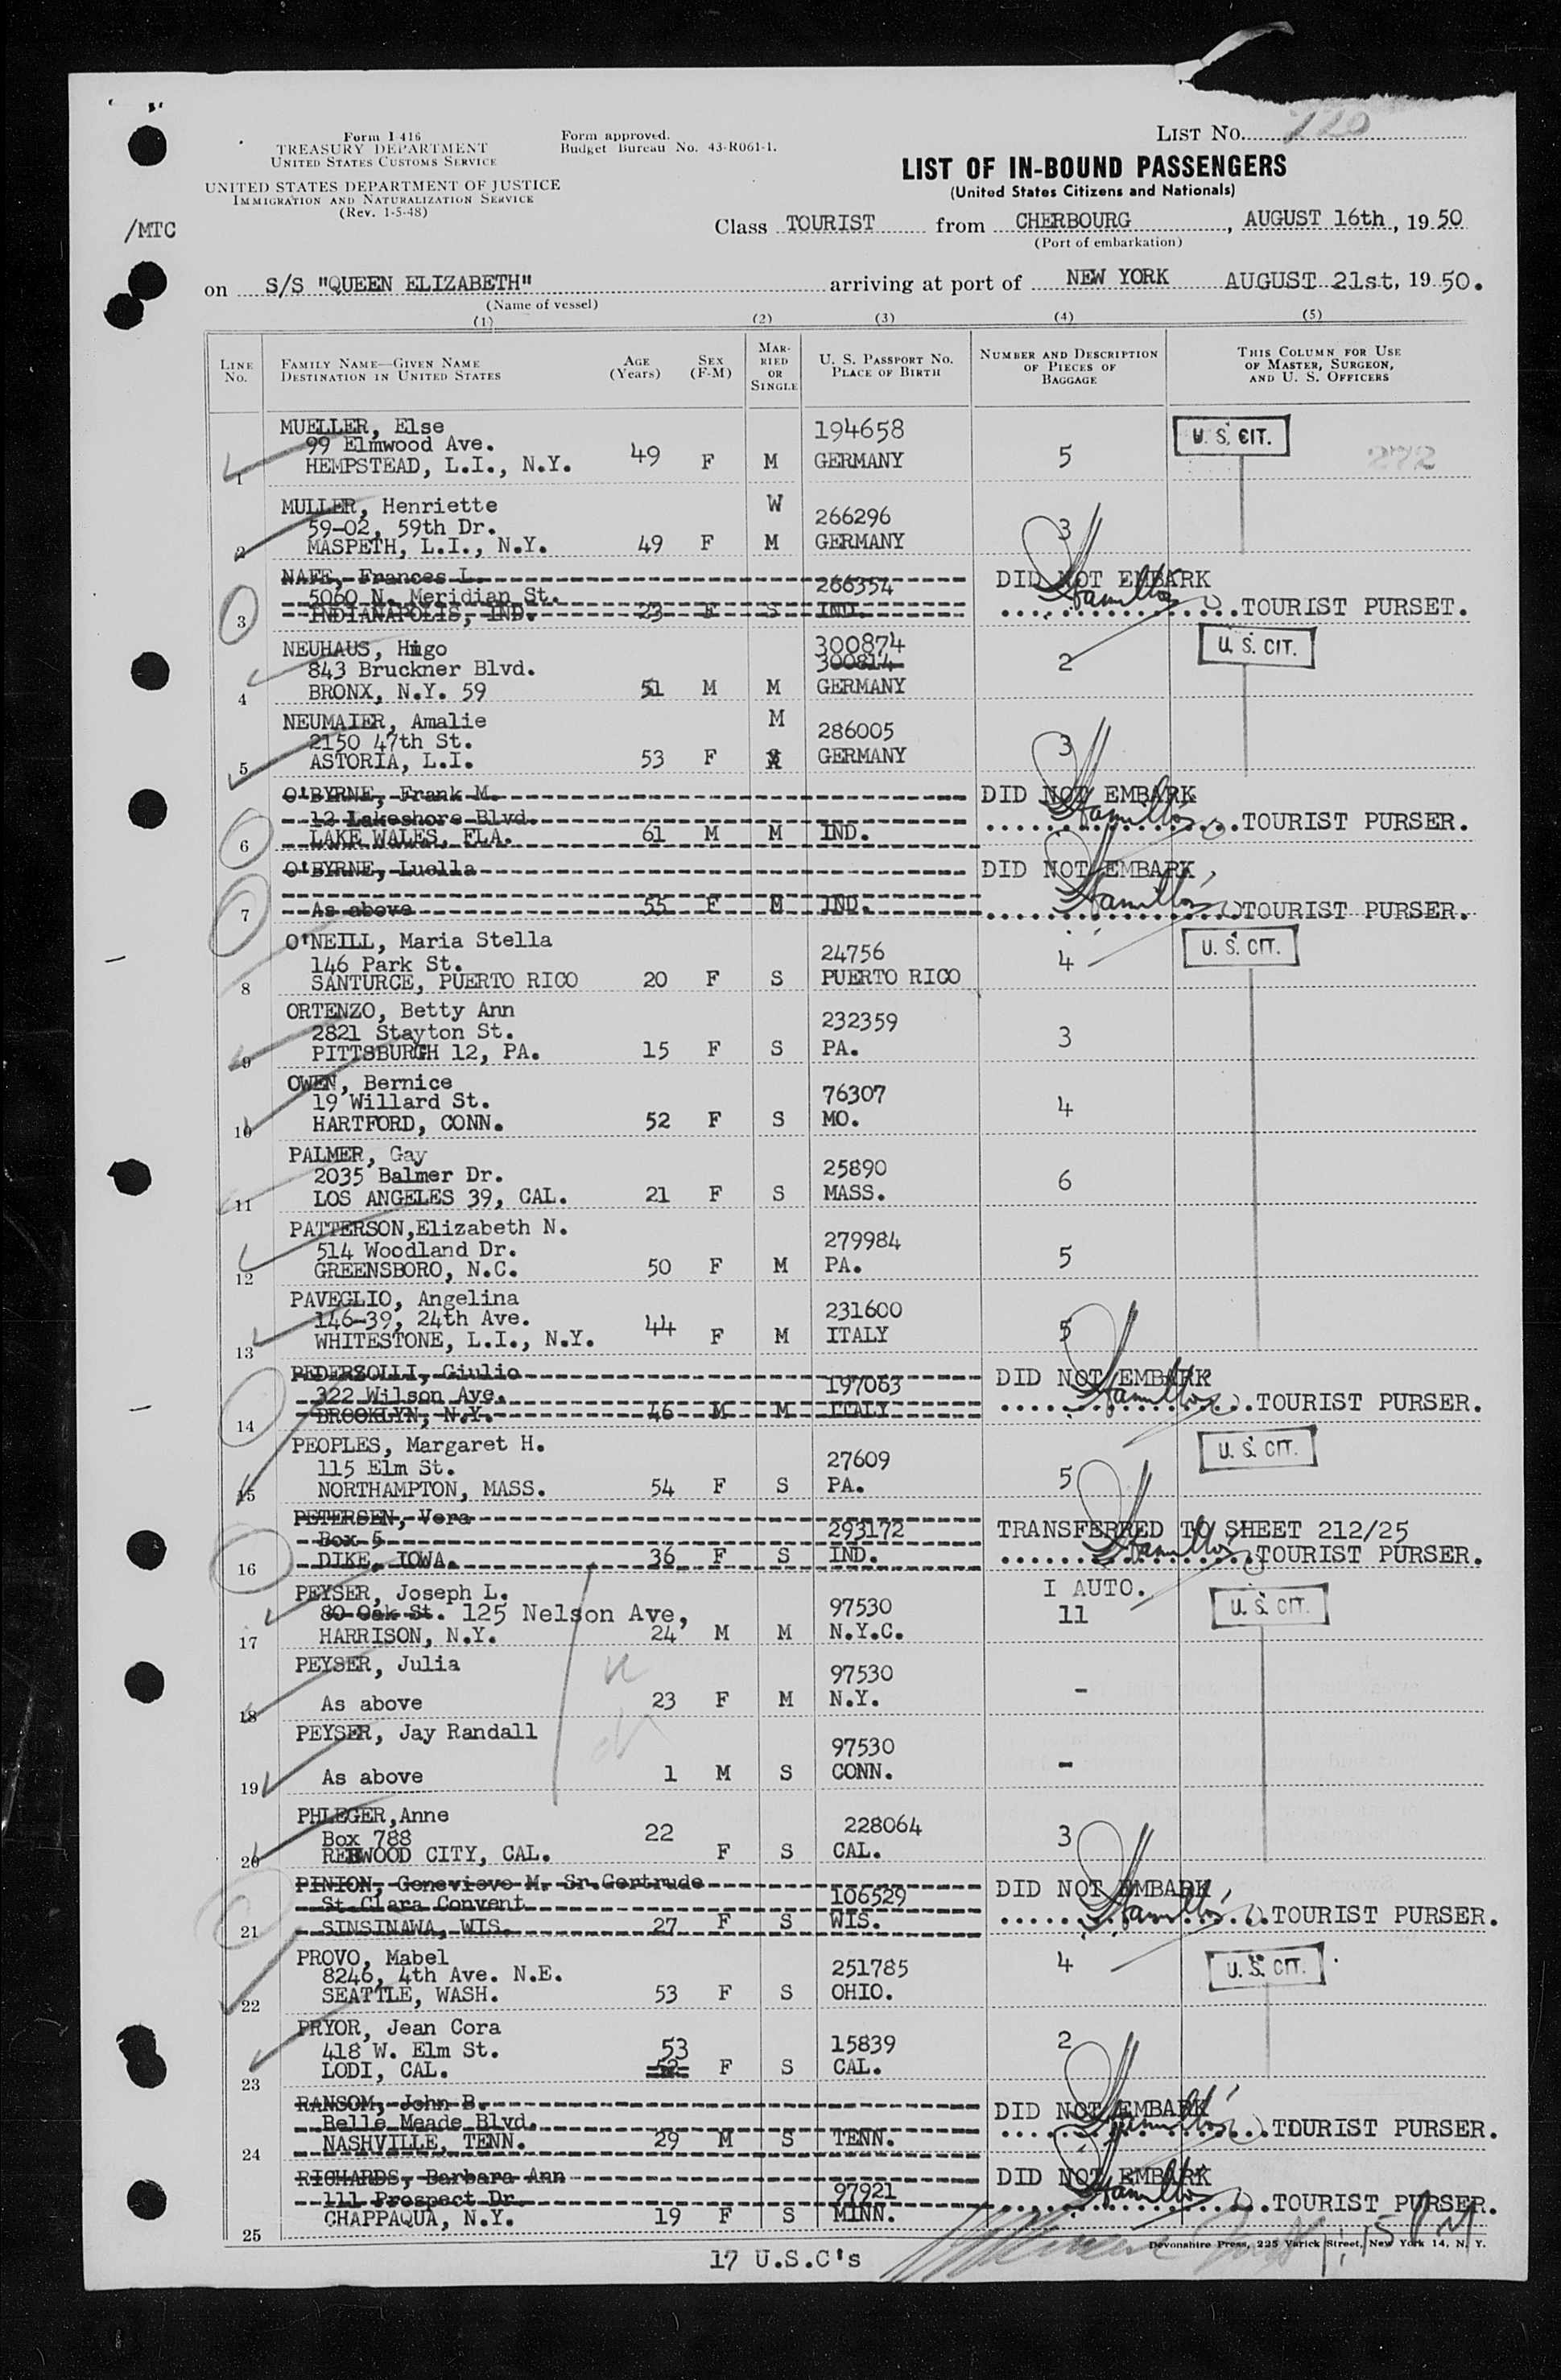 LIST No. 220
Form I-416
TREASURY DEPARTMENT
UNITED STATES CUSTOMS SERVICE
Form approved.
Budget Bureau No. 43-R061-1.
UNITED STATES DEPARTMENT OF JUSTICE
IMMIGRATION AND NATURALIZATION SERVICE
(Rev. 1-5-48)
LIST OF IN-BOUND PASSENGERS
(United States Citizens and Nationals)
/MTC
Class TOURIST from CHERBOURG, AUGUST 16th, 19 50
(Port of embarkation)
on S/S "QUEEN ELIZABETH" arriving at port of NEW YORK AUGUST 21st, 19 50.
(Name of vessel)
(1) (2) (3) (4) (5)
LINE No. FAMILY NAME—GIVEN NAME DESTINATION IN UNITED STATES AGE (Years) SEX (F-M) MARRIED OR SINGLE U. S. PASSPORT No. PLACE OF BIRTH NUMBER AND DESCRIPTION OF PIECES OF BAGGAGE THIS COLUMN FOR USE OF MASTER, SURGEON, AND U. S. OFFICERS
MUELLER, Else 194658 U. S. CIT.
99 Elmwood Ave.
1 HEMPSTEAD, L.I., N.Y. 49 F M GERMANY 5 272
MULLER, Henriette W 266296
59-02, 59th Dr. 3
2 MASPETH, L.I., N.Y. 49 F M GERMANY
NAFE, Frances L. 266354 DID NOT EMBARK
5060 N. Meridian St. Hamilton
3 INDIANAPOLIS, IND. 23 F S IND. TOURIST PURSET.
NEUHAUS, Hugo 300874 U. S. CIT.
843 Bruckner Blvd. 300814 2
4 BRONX, N.Y. 59 51 M M GERMANY
NEUMAIER, Amalie M 286005
2150 47th St. 3
5 ASTORIA, L.I. 53 F GERMANY
O'BYRNE, Frank M. DID NOT EMBARK
12 Lakeshore Blvd. Hamilton
6 LAKE WALES, FLA. 61 M M IND. TOURIST PURSER.
O'BYRNE, Luella DID NOT EMBARK
7 As above 55 F M IND. Hamilton TOURIST PURSER.
O'NEILL, Maria Stella 24756 U. S. CIT.
146 Park St. 4
8 SANTURCE, PUERTO RICO 20 F S PUERTO RICO
ORTENZO, Betty Ann 232359
2821 Stayton St. 3
9 PITTSBURGH 12, PA. 15 F S PA.
OWEN, Bernice 76307
19 Willard St. 4
10 HARTFORD, CONN. 52 F S MO.
PALMER, Gay 25890
2035 Balmer Dr. 6
11 LOS ANGELES 39, CAL. 21 F S MASS.
PATTERSON,Elizabeth N. 279984
514 Woodland Dr. 5
12 GREENSBORO, N.C. 50 F M PA.
PAVEGLIO, Angelina 231600
146-39, 24th Ave. 44 5
13 WHITESTONE, L.I., N.Y. F M ITALY
PEDERZOLLI, Giulio 197063 DID NOT EMBARK
322 Wilson Ave. Hamilton
14 BROOKLYN, N.Y. 46 M M ITALY TOURIST PURSER.
PEOPLES, Margaret H. 27609 U. S. CIT.
115 Elm St. 5
15 NORTHAMPTON, MASS. 54 F S PA.
PETERSEN, Vera 293172 TRANSFERRED TO SHEET 212/25
Box 5 Hamilton
16 DIKE, IOWA. 36 F S IND. TOURIST PURSER.
PEYSER, Joseph L. 97530 I AUTO. U. S. CIT.
80 Oak St. 125 Nelson Ave, 11
17 HARRISON, N.Y. 24 M M N.Y.C.
PEYSER, Julia 97530
18 As above 23 F M N.Y. -
PEYSER, Jay Randall 97530
19 As above 1 M S CONN. -
PHLEGER,Anne 228064
Box 788 22 3
20 REDWOOD CITY, CAL. F S CAL.
PINION, Genevieve M. Sr.Gertrude 106529 DID NOT EMBARK
St.Clara Convent Hamilton
21 SINSINAWA, WIS. 27 F S WIS. TOURIST PURSER.
PROVO, Mabel 251785 4 U. S. CIT.
8246, 4th Ave. N.E.
22 SEATTLE, WASH. 53 F S OHIO.
PRYOR, Jean Cora 15839 2
418 W. Elm St. 53
23 LODI, CAL. 52 F S CAL.
RANSOM, John B. DID NOT EMBARK
Belle Meade Blvd. Hamilton
24 NASHVILLE, TENN. 29 M S TENN. TOURIST PURSER.
RICHARDS, Barbara Ann 97921 DID NOT EMBARK
111 Prospect Dr. Hamilton
25 CHAPPAQUA, N.Y. 19 F S MINN. TOURIST PURSER.
Devonshire Press, 225 Varick Street, New York 14, N. Y.
17 U.S.C's